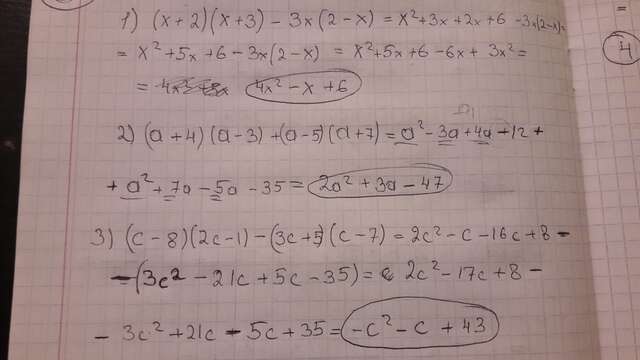 1) (x+2)(x+3) - 3x(2-x) = x²+3x+2x+6 -3x(2-x)=
= x²+5x+6-3x(2-x) = x²+5x+6-6x+3x²=
= 4x²-x+6
4
2) (a+4)(a-3)+(a-5)(a+7)=a²-3a+4a-12+
+a²+7a-5a-35=2a²+3a-47
3) (c-8)(2c-1)-(3c+5)(c-7)=2c²-c-16c+8-
-(3c²-21c+5c-35)= 2c²-17c+8-
-3c²+21c-5c+35=-c²-c+43